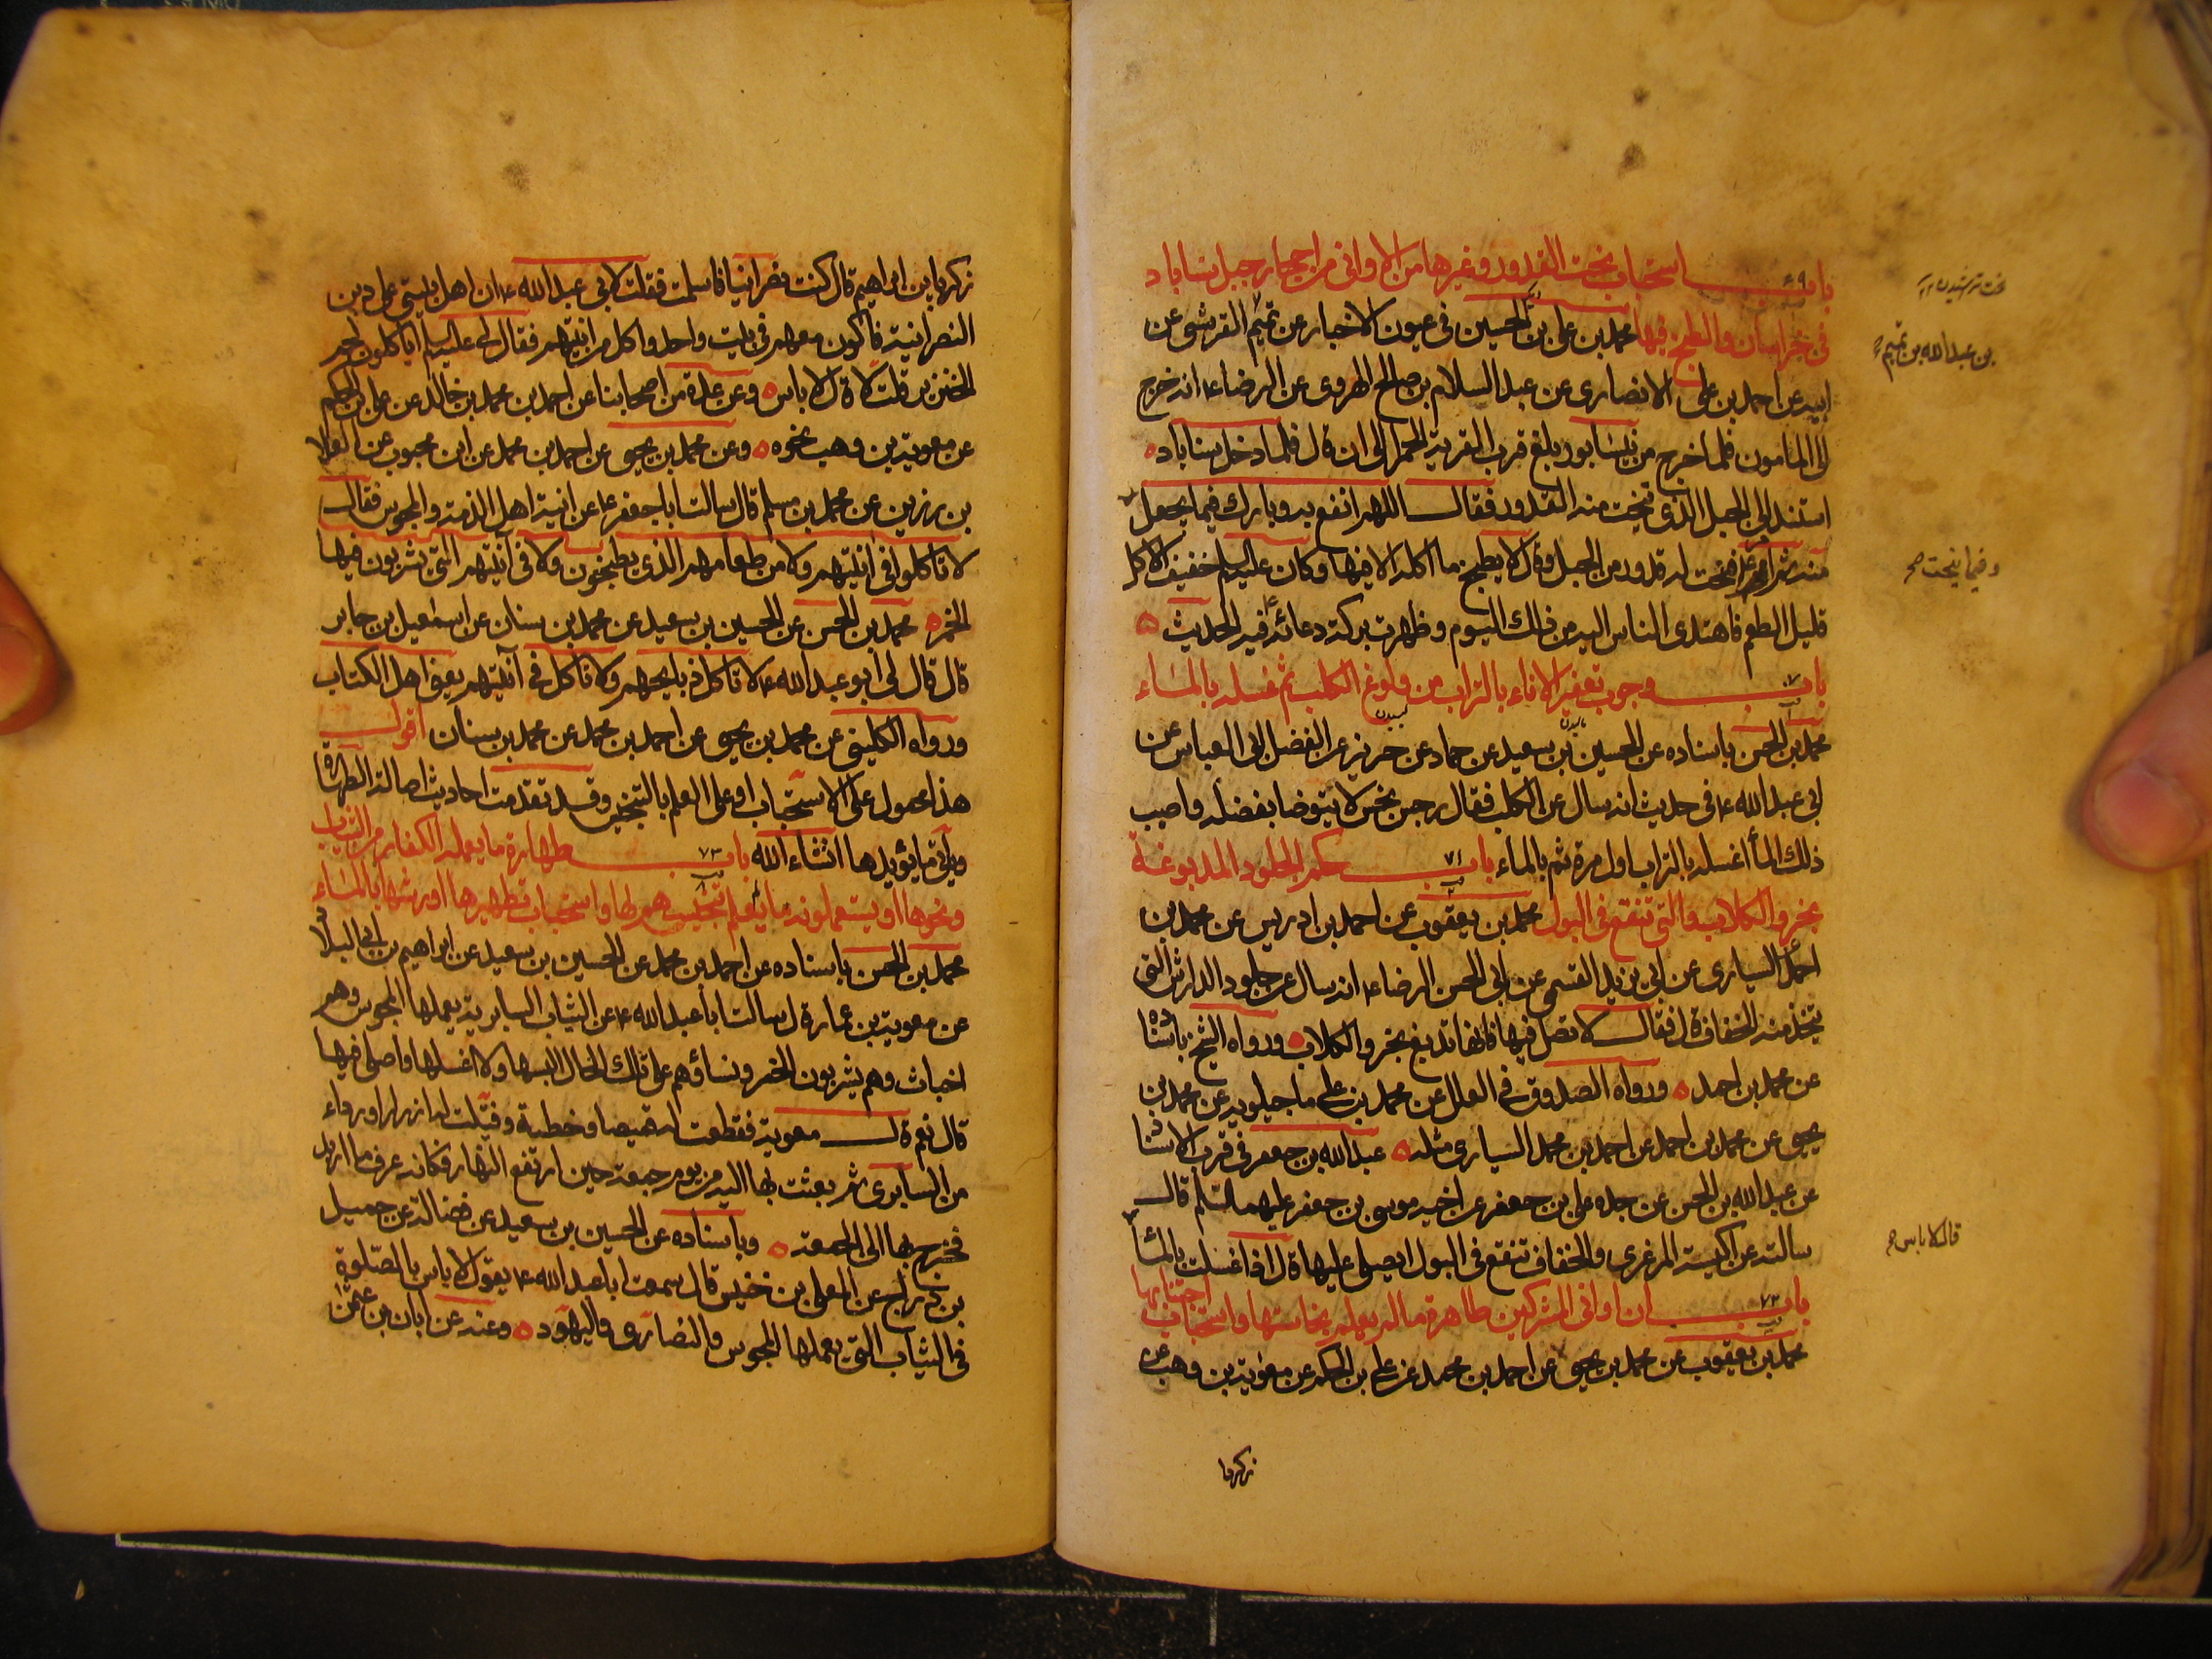 باب ٦٩ استحباب نحت القدور وغيرها من الاواني من احجار جبل سناباد
في خراسان والطبخ فيها محمد بن علي بن الحسين في عيون الاخبار عن تميم القرشي عن
بن عبد الله بن تميم
ابيه عن احمد بن علي الانصاري عن عبد السلام بن صالح الهروي عن الرضا ع انه خرج
الى المامون فلما خرج من نيسابور بلغ قرب القرية الحمرا الى ان قال فلما دخل سناباد
استند الى الجبل الذي تنحت منه القدور فقال اللهم انفع به وبارك فيما يجعل
منه ثم امر فنحت له قدور من الجبل وقال لا يطبخ ما اكله الا فيها وكان عليه السلم خفيف الاكل
وفيما ينحت
قليل الطعم فاهتدى الناس اليه من ذلك اليوم وظهرت بركة دعائه فيه الحديث
باب ٧٠ وجوب تعفير الاناء بالتراب من ولوغ الكلب ثم غسله بالماء
محمد بن الحسن باسناده عن الحسين بن سعيد عن حماد عن حريز عن الفضل ابي العباس عن
ابي عبد الله ع في حديث انه سال عن الكلب فقال رجس نجس لا يتوضا بفضله واصبب
ذلك الماء اغسله بالتراب اول مرة ثم بالماء باب ٧١ حكم الجلود المدبوغة
بخرو الكلاب والتي تنقع في البول محمد بن يعقوب عن احمد بن ادريس عن محمد بن
احمد السياري عن ابي يزيد القسمي عن ابي الحسن الرضا ع انه سال عن جلود الدارش التي
يتخذ منه الخفاف قال فقال لا تصل فيها فانها تدبغ بخرو الكلاب ورواه الشيخ باسناده
عن محمد بن احمد ورواه الصدوق في العلل عن محمد بن علي ماجيلويه عن محمد بن
يحيى عن محمد بن احمد عن احمد بن محمد السياري مثله عبد الله بن جعفر في قرب الاسنا
عن عبد الله بن الحسن عن جده علي بن جعفر عن اخيه موسى بن جعفر عليهما السلم قال
سالته عن اكسية المرعزى والخفاف تنقع في البول ايصلى عليها قال اذا غسلت بالماء
قال لا باس
باب ٧٢ ان اواني المشركين طاهرة ما لم يعلم نجاستها واستحباب اجتنابها
محمد بن يعقوب عن محمد بن يحيى عن احمد بن محمد عن علي بن الحكم عن معوية بن وهب عن
زكريا
زكريا بن ابراهيم قال كنت نصرانيا فاسلمت فقلت لابي عبد الله ع ان اهل بيتي على دين
النصرانية فاكون معهم في بيت واحد واكل من انيتهم فقال لي عليه السلم اياكلون لحم
الخنزير قلت لا قال لا باس وعن عدة من اصحابنا عن احمد بن محمد بن خالد عن علي بن الحكم
عن معوية بن وهب نحوه وعن محمد بن يحيى عن احمد بن محمد عن ابن محبوب عن العلا
بن رزين عن محمد بن مسلم قال سالت ابا جعفر ع عن انية اهل الذمة والمجوس فقال
لا تاكلوا في انيتهم ولا من طعامهم الذي يطبخون ولا في آنيتهم التي يشربون فيها
الخمر محمد بن الحسن عن الحسين بن سعيد عن محمد بن سنان عن اسمعيل بن جابر
قال قال لي ابو عبد الله ع لا تاكل ذبايحهم ولا تاكل في آنيتهم يعني اهل الكتاب
ورواه الكليني عن محمد بن يحيى عن احمد بن محمد عن محمد بن سنان اقول
هذا محمول على الاستحباب او على العلم بالتنجيس وقد تقدمت احاديث اصالة الطهارة
وياتي ما يؤيدها انشاء الله باب ٧٣ طهارة ما يعمله الكفار من الثياب
ونحوها او يستعملونه ما لم يعلم تنجيسهم لها واستحباب تطهيرها او رشها بالماء
محمد بن الحسن باسناده عن احمد بن محمد عن الحسين بن سعيد عن ابراهيم بن ابي البلاد
عن معوية بن عمار قال سالت ابا عبد الله ع عن الثياب السابرية يعملها المجوس وهم
اخباث وهم يشربون الخمر ونساؤهم على تلك الحال البسها ولا اغسلها واصلي فيها
قال نعم قال معوية فقطعت له قميصا وخطته وفتلت له ازرارا ورداء
من السابري ثم بعثت بها اليه من يوم جمعة حين ارتفع النهار فكانه عرف ما اريد
فخرج بها الى الجمعة وباسناده عن الحسين بن سعيد عن فضالة عن جميل
بن دراج عن المعلى بن خنيس قال سمعت ابا عبد الله ع يقول لا باس بالصلوة
في الثياب التي يعملها المجوس والنصارى واليهود وعنه عن ابان بن عثمن